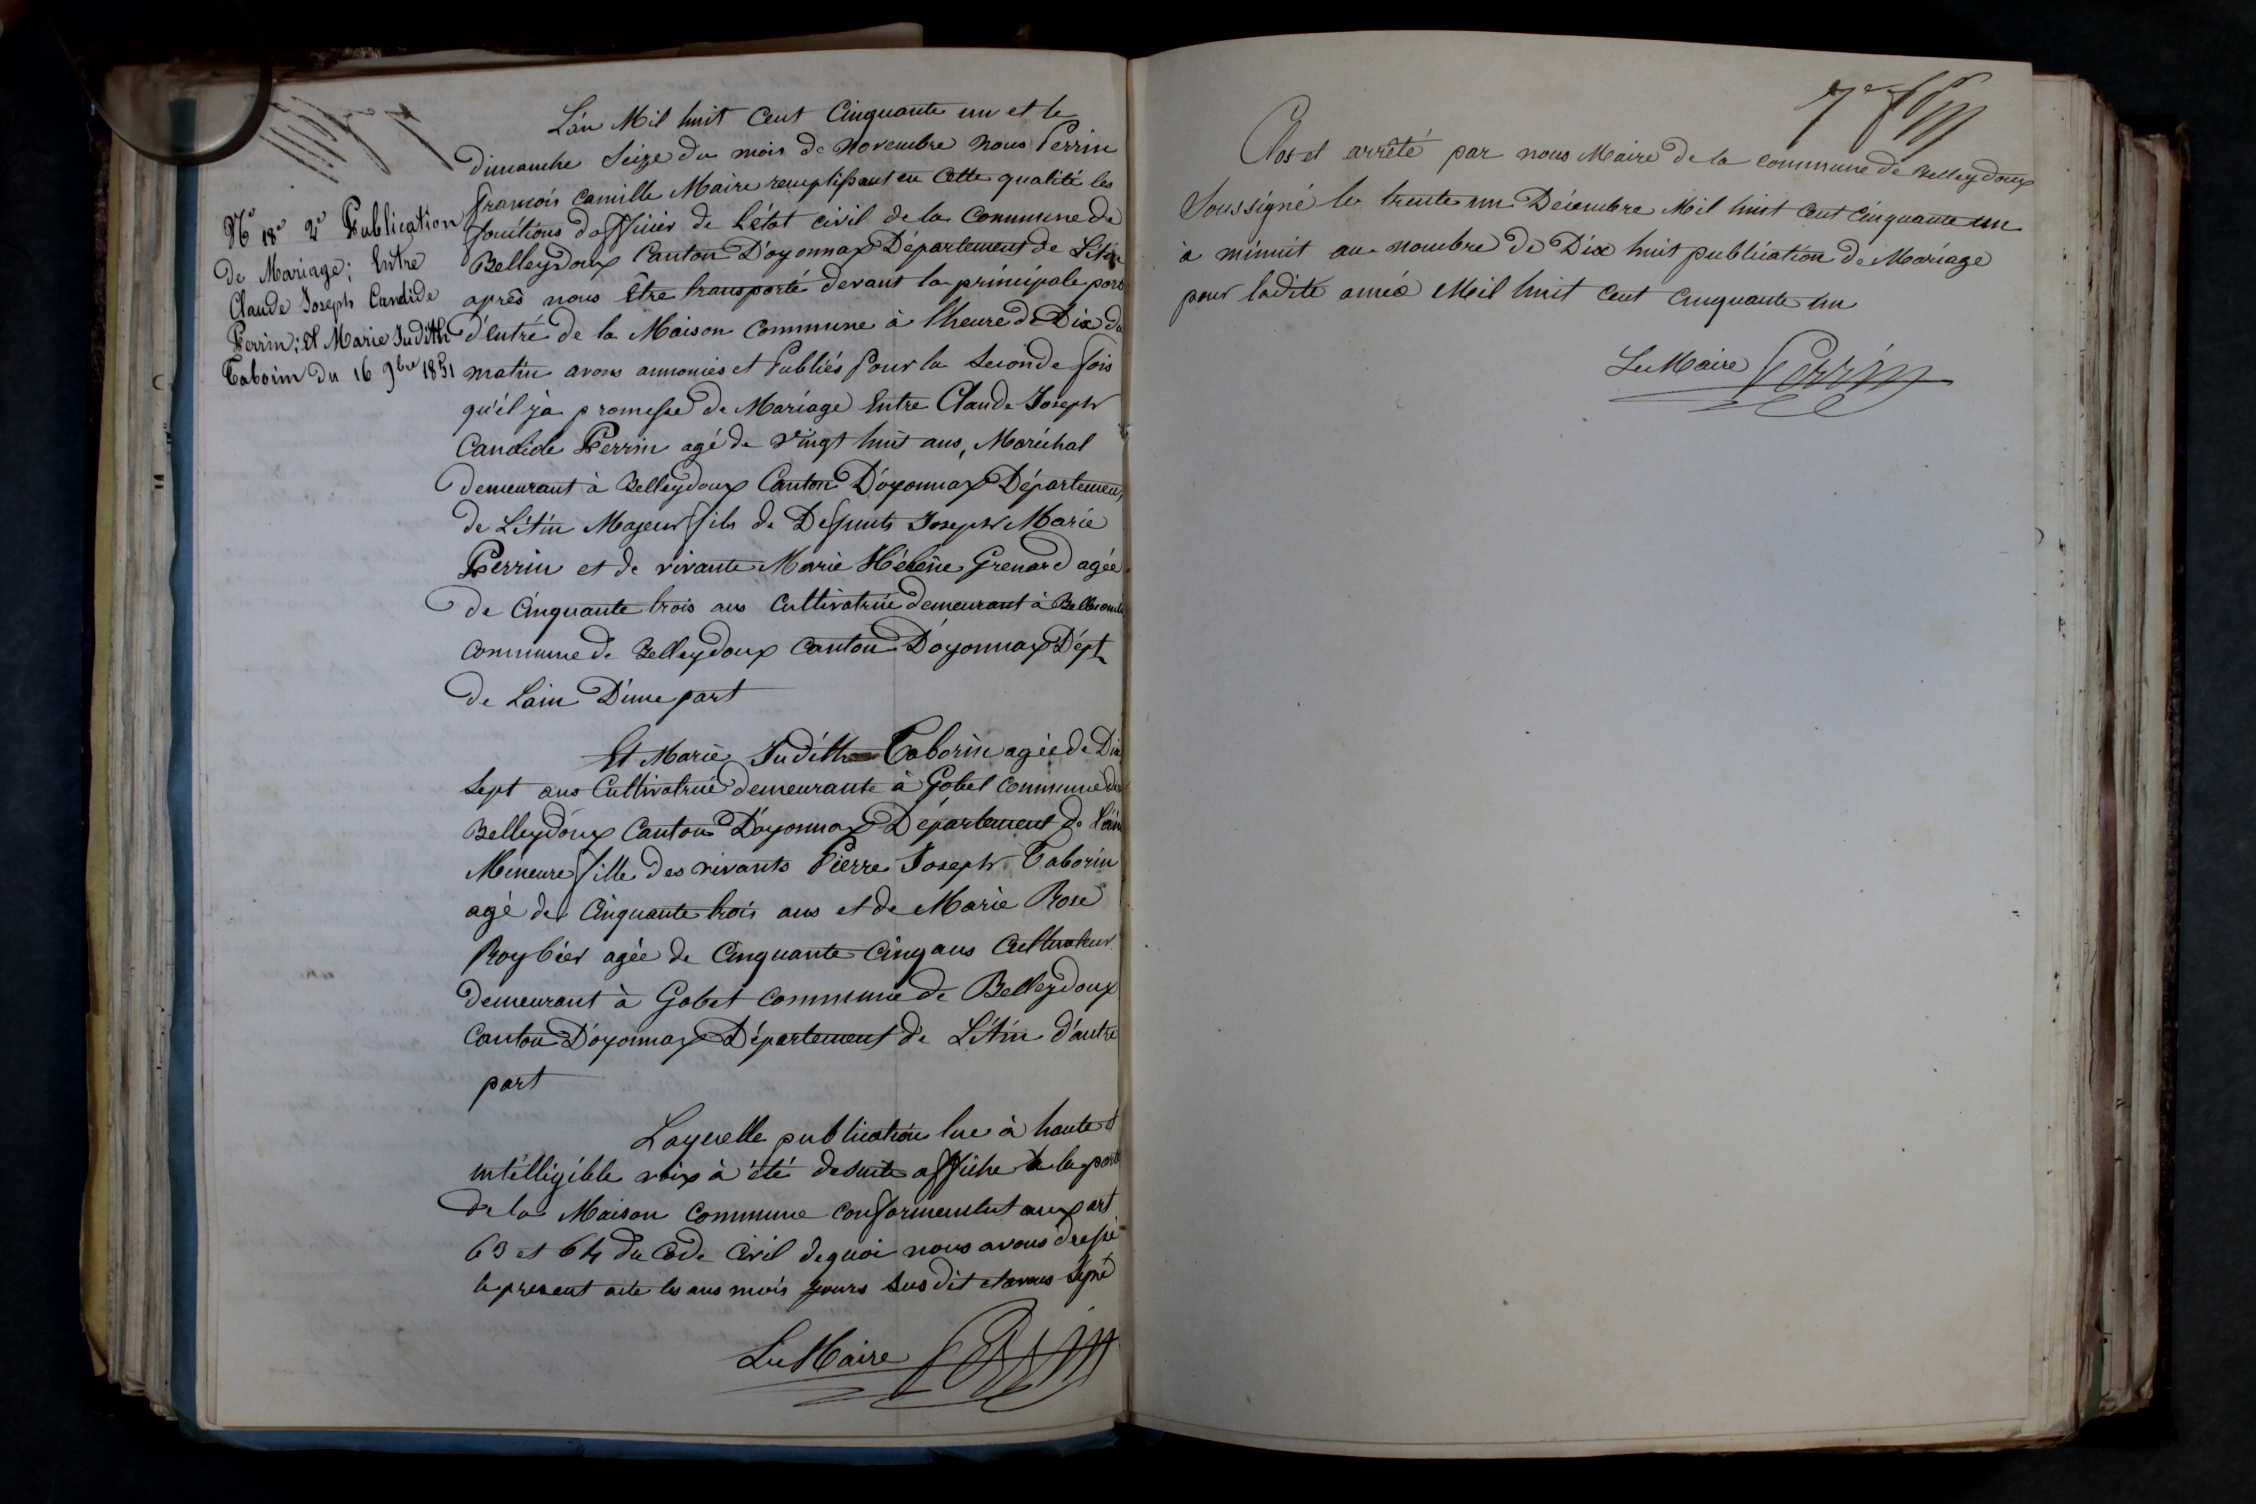 N° 18e 2e Publication
de Mariage; Entre
Claude Joseph Candide
Perrin; et Marie Judith
Taborin du 16 9bre 1851
L'an Mil huit Cent Cinquante un et le
dimanche Seize du mois de Novembre nous Perrin
françois Camille Maire remplissant en Cette qualité les
fonctions d'officier de L'état Civil de la Commune de
Belleydoux Canton D'oyonnax Département de L'Ain
après nous Etre transporté devant la principale porte
d'entré de la Maison Commune à l'heure de Dix du
matin avons annoncés et Publiés Pour la Seconde fois
qu'il y à promesse de Mariage Entre Claude Joseph
Candide Perrin agé de vingt huit ans, Maréchal
demeurant à Belleydoux Canton D'oyonnax Département
de L'Ain Majeur fils de Defunts Joseph Marie
Perrin et de vivante Marie Hélène Grenard agée
de Cinquante trois ans Cultivatrice demeurant à
Commune de Belleydoux Canton D'oyonnax Dépt
de Lain D'une part
Et Marie Judith Taborin agée de Dix
Sept ans Cultivatrice demeurante à Gobet Commune de
Belleydoux Canton D'oyonnax Département de L'ain
Mineure fille des vivants Pierre Joseph Taborin
agé de Cinquante trois ans et de Marie Rose
Roybier agée de Cinquante Cinq ans Cultivateur
demeurant à Gobet Commune de Belleydoux
Canton D'oyonnax Département de L'Ain d'autre
part
Laquelle publication lue à haute et
intélligible voix à été desuite affiche à la porte
de la Maison Commune Conformement aux art
63 et 64 du Code Civil dequoi nous avons dressé
le present acte les ans mois jours Susdit et avons signé
Le Maire Perrin
Clos et arrêté par nous Maire de la Commune de Belleydoux
Soussigné le trente un Décembre Mil huit Cent Cinquante un
à minuit au nombre de Dix huit publication de Mariage
pour ladite année Mil huit Cent Cinquante un
Le Maire Perrin